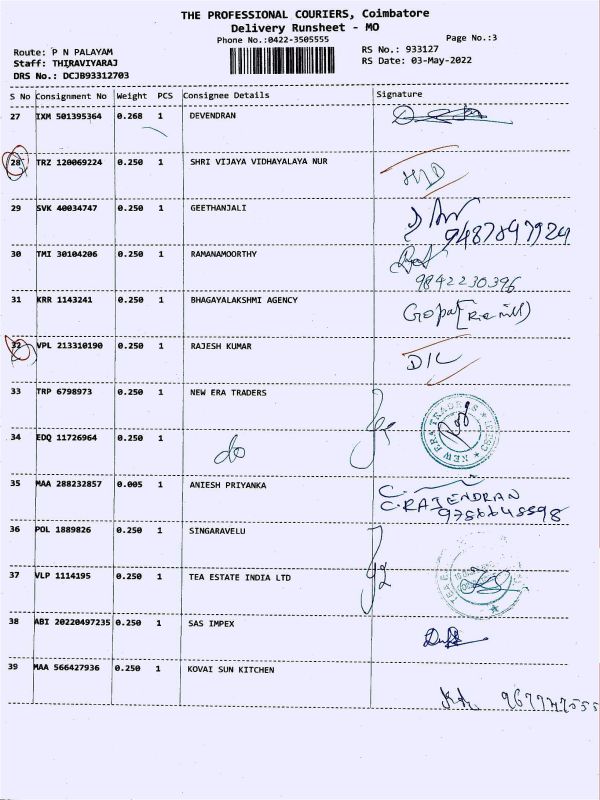 THE PROFESSIONAL COURIERS, Coimbatore
Delivery Runsheet - MO
Phone No.:0422-3505555 Page No.:3
Route: P N PALAYAM RS No.: 933127
Staff: THIRAVIYARAJ RS Date: 03-May-2022
DRS No.: DCJB93312703
S No Consignment No Weight PCS Consignee Details Signature
27 IXM 501395364 0.268 1 DEVENDRAN
28 TRZ 120069224 0.250 1 SHRI VIJAYA VIDHAYALAYA NUR
29 SVK 40034747 0.250 1 GEETHANJALI
9487847924
30 TMI 30104206 0.250 1 RAMANAMOORTHY
9842230396
31 KRR 1143241 0.250 1 BHAGAYALAKSHMI AGENCY
32 VPL 213310190 0.250 1 RAJESH KUMAR D/L
33 TRP 6798973 0.250 1 NEW ERA TRADERS
NEW ERA TRADERS
34 EDQ 11726964 0.250 1 do
35 MAA 288232857 0.005 1 ANIESH PRIYANKA
C. RAJENDRAN
36 POL 1889826 0.250 1 SINGARAVELU
37 VLP 1114195 0.250 1 TEA ESTATE INDIA LTD
38 ABI 20220497235 0.250 1 SAS IMPEX
39 MAA 566427936 0.250 1 KOVAI SUN KITCHEN